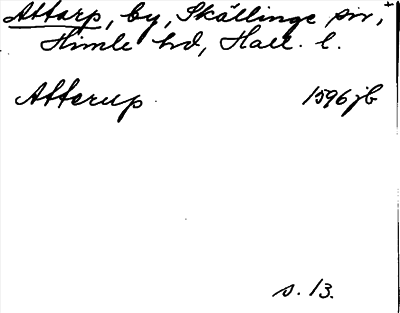 Attarp, by, Skällinge sn, +
Himle hd, Hall. l.
Atterup 1596 jb
s. 13.